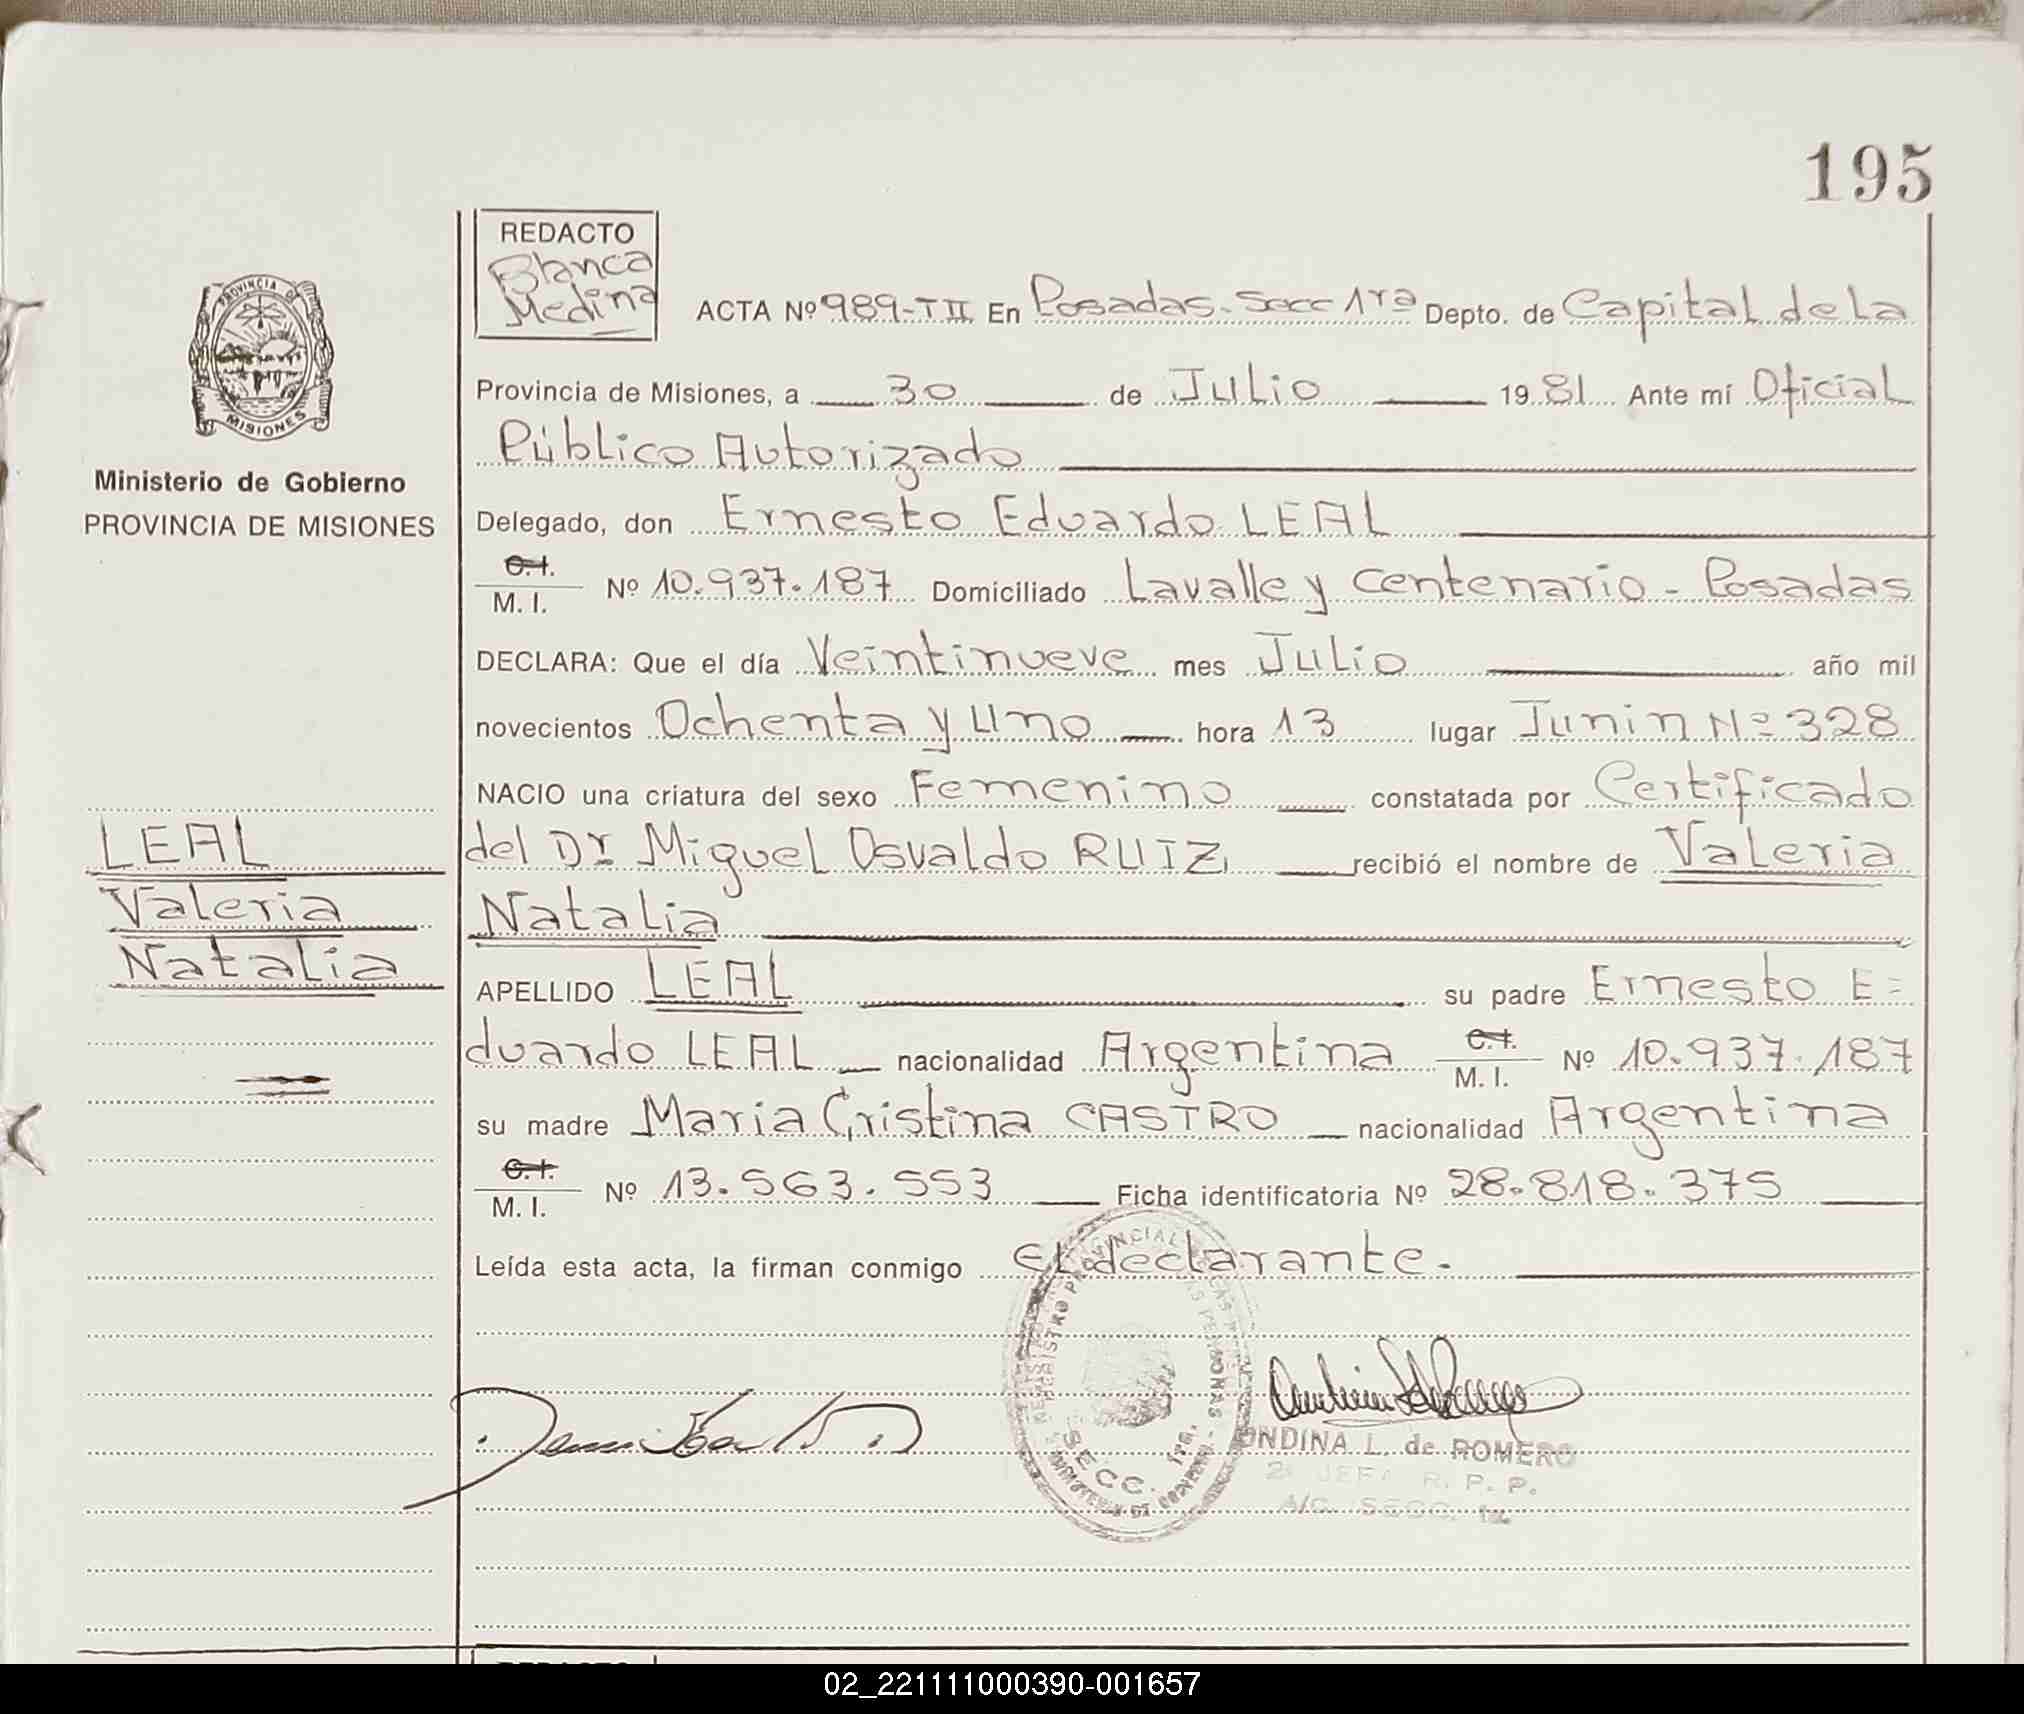 195
REDACTO
Blanca
Medina
PROVINCIA DE
MISIONES
ACTA Nº 989-T II En Posadas-Secc 1ra Depto. de Capital de la
Provincia de Misiones, a 30 de Julio 1981 Ante mí Oficial
Público Autorizado
Ministerio de Gobierno
PROVINCIA DE MISIONES
Delegado, don Ernesto Eduardo LEAL
C.I.
M. I. Nº 10.937.187 Domiciliado Lavalle y Centenario - Posadas
DECLARA: Que el día Veintinueve mes Julio año mil
novecientos Ochenta y Uno hora 13 lugar Junin Nº 328
NACIO una criatura del sexo Femenino constatada por Certificado
del Dr Miguel Osvaldo RUIZ recibió el nombre de Valeria
Natalia
LEAL
Valeria
Natalia
APELLIDO LEAL su padre Ernesto E=
duardo LEAL nacionalidad Argentina C.I.
M. I. Nº 10.937.187
su madre Maria Cristina CASTRO nacionalidad Argentina
C.I.
M. I. Nº 13.563.553 Ficha identificatoria Nº 28.818.375
Leída esta acta, la firman conmigo El declarante.
SECC. 1ra.
ONDINA L. de ROMERO
2ª JEFA R. P. P.
A/C. SECC. 1a.
02_221111000390-001657